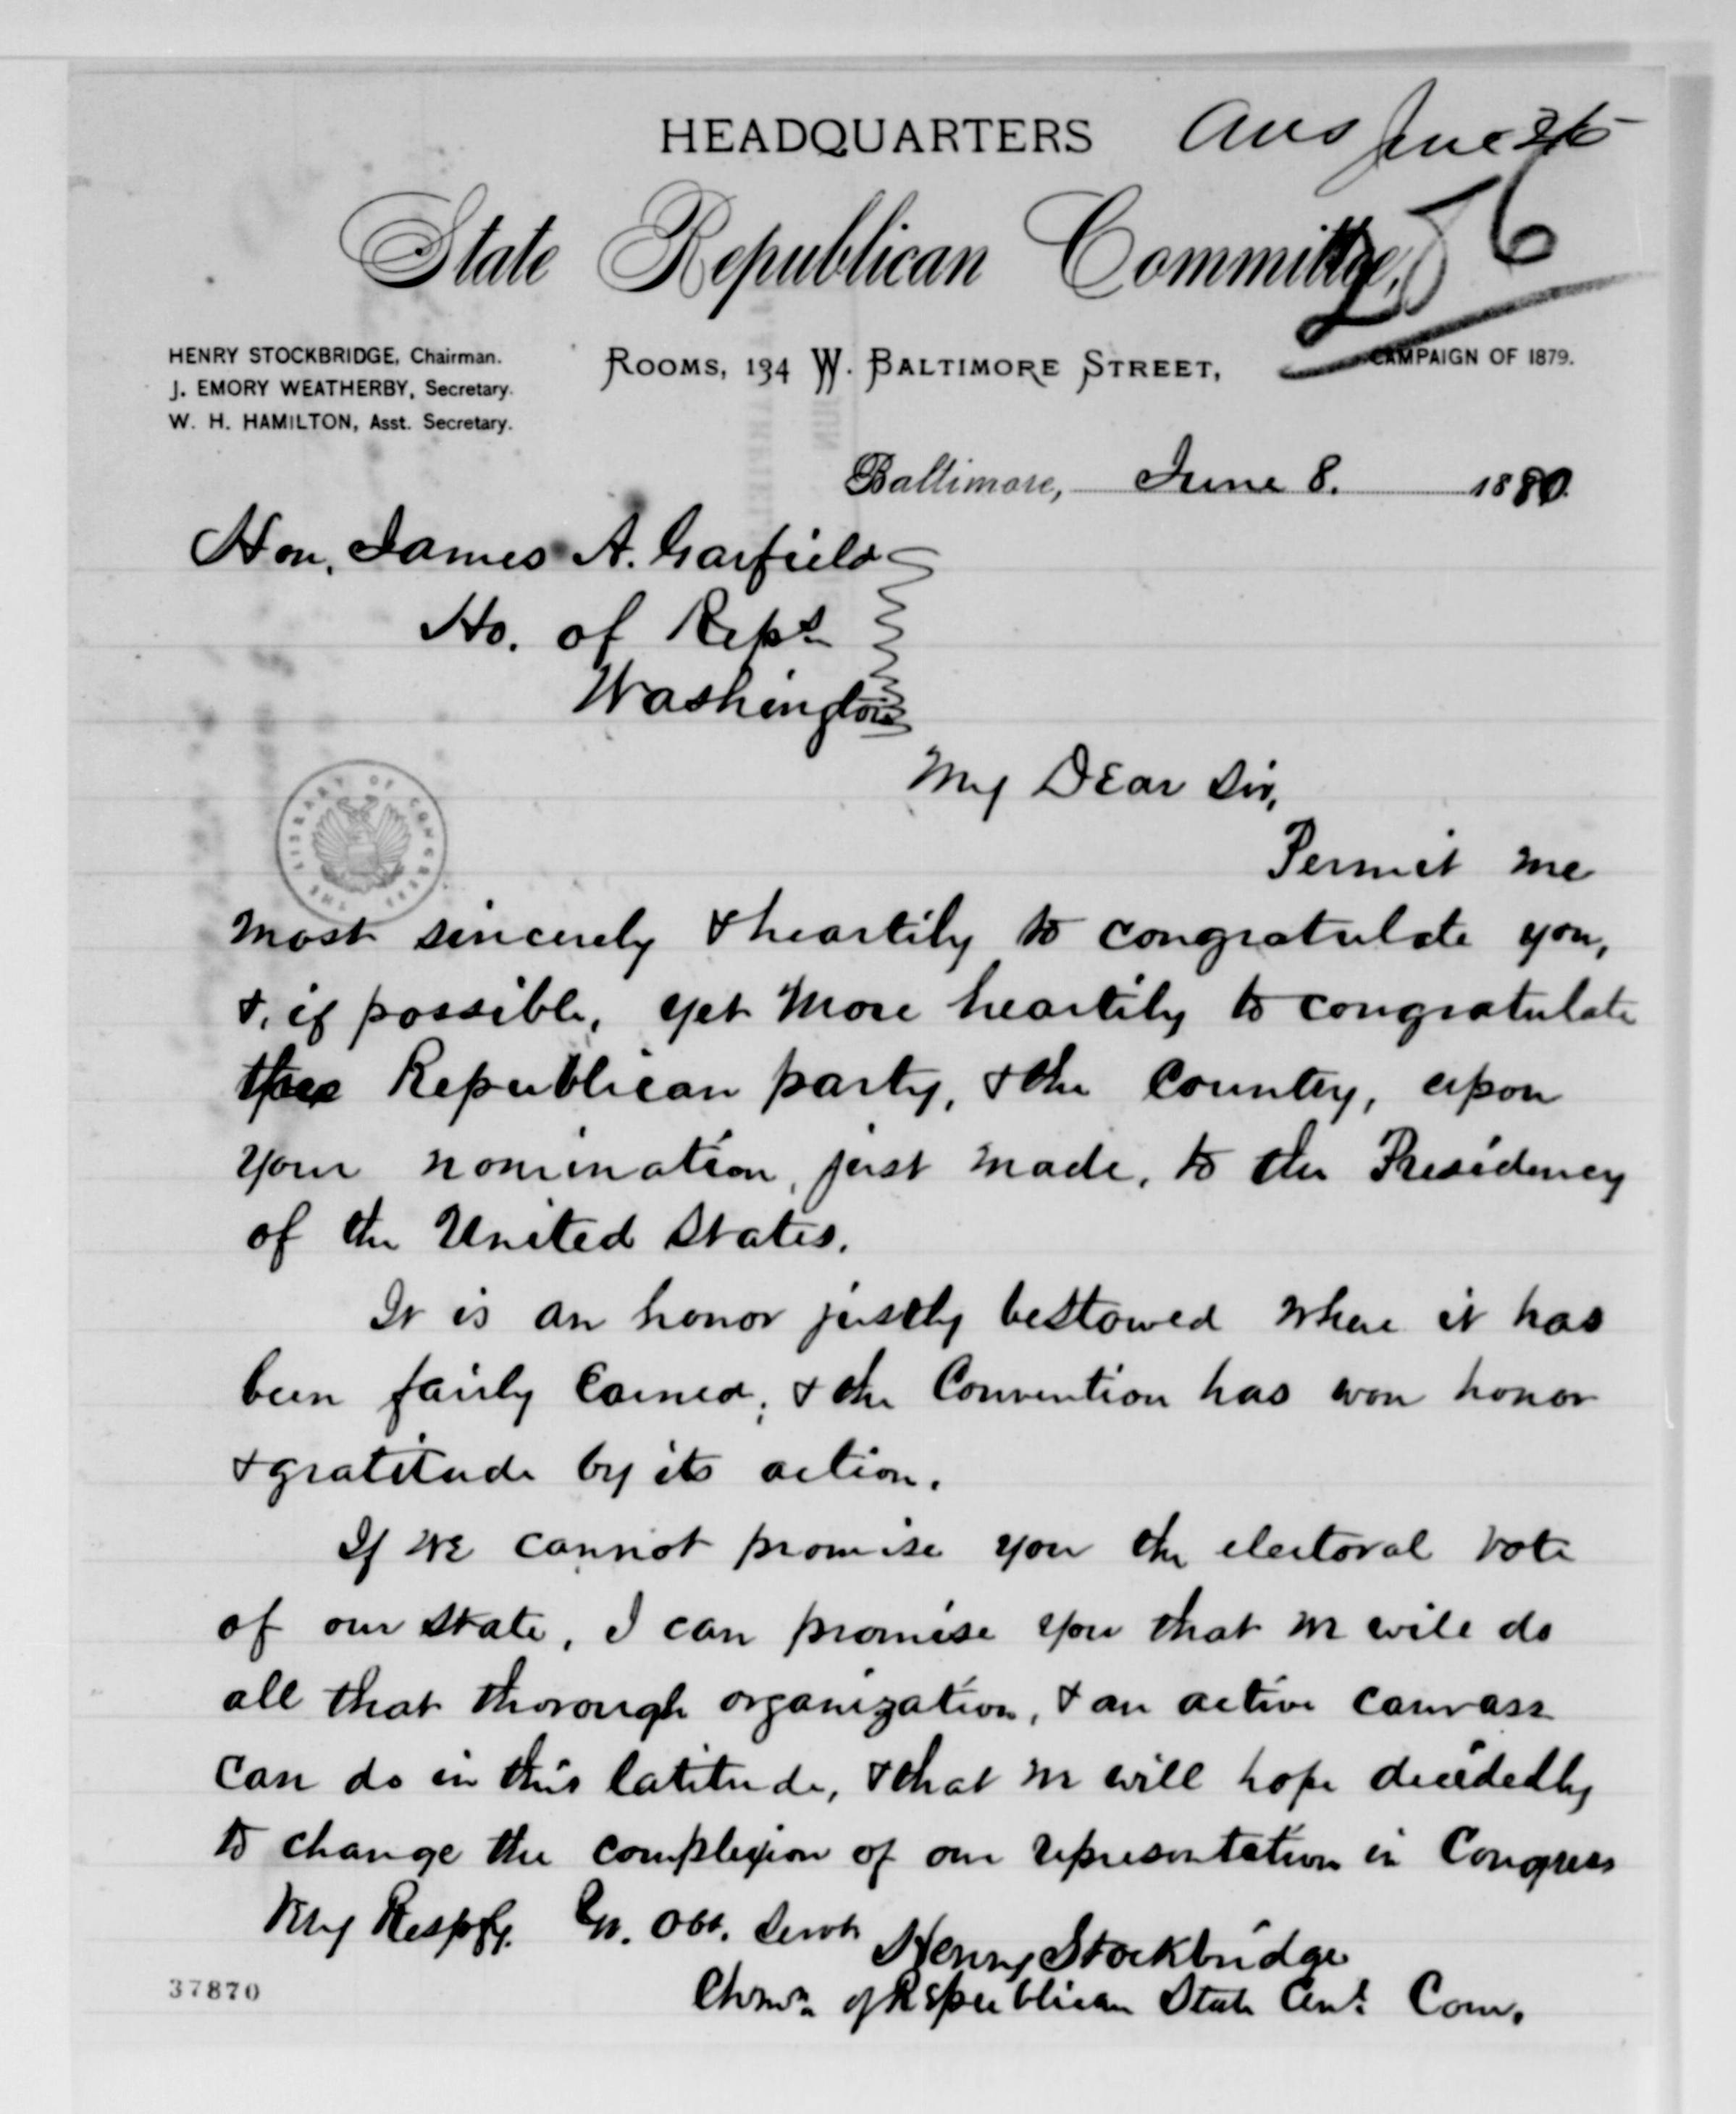 HEADQUARTERS
Ans June 26
State Republican Committee,
56
HENRY STOCKBRIDGE, Chairman.
J. EMORY WEATHERBY, Secretary.
W. H. HAMILTON, Asst. Secretary.
ROOMS, 194 W. BALTIMORE STREET,
CAMPAIGN OF 1879.
Baltimore, June 8. 1880.
Hon. James A. Garfield
Ho. of Reps
Washington
My Dear Sir,
Permit me
most sincerely & heartily to congratulate you,
&, if possible, yet more heartily to congratulate
the Republican party, & the Country, upon
your nomination, just made, to the Presidency
of the United States.
It is an honor justly bestowed where it has
been fairly earned; & the Convention has won honor
& gratitude by its action.
If we cannot promise you the electoral vote
of our State, I can promise you that we will do
all that thorough organization, & an active canvass
can do in this latitude, & that we will hope decidedly
to change the complexion of our representation in Congress
Very Respfy. Yr. Obt. Servt
Henry Stockbridge
Chmn of Republican State Cent. Com.
THE LIBRARY OF CONGRESS
37870